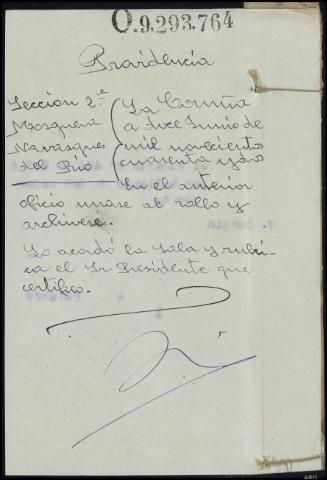 O.9.293.764
Providencia
Seccion 2ª
Mosquera
Navasques
del Rio
La Coruña
a doce Junio de
mil novecientos
cuarenta y dos
En el anterior
oficio unase al rollo y
archivese.
Lo acordó la Sala y rubri-
ca el Sr Presidente que
certifico.